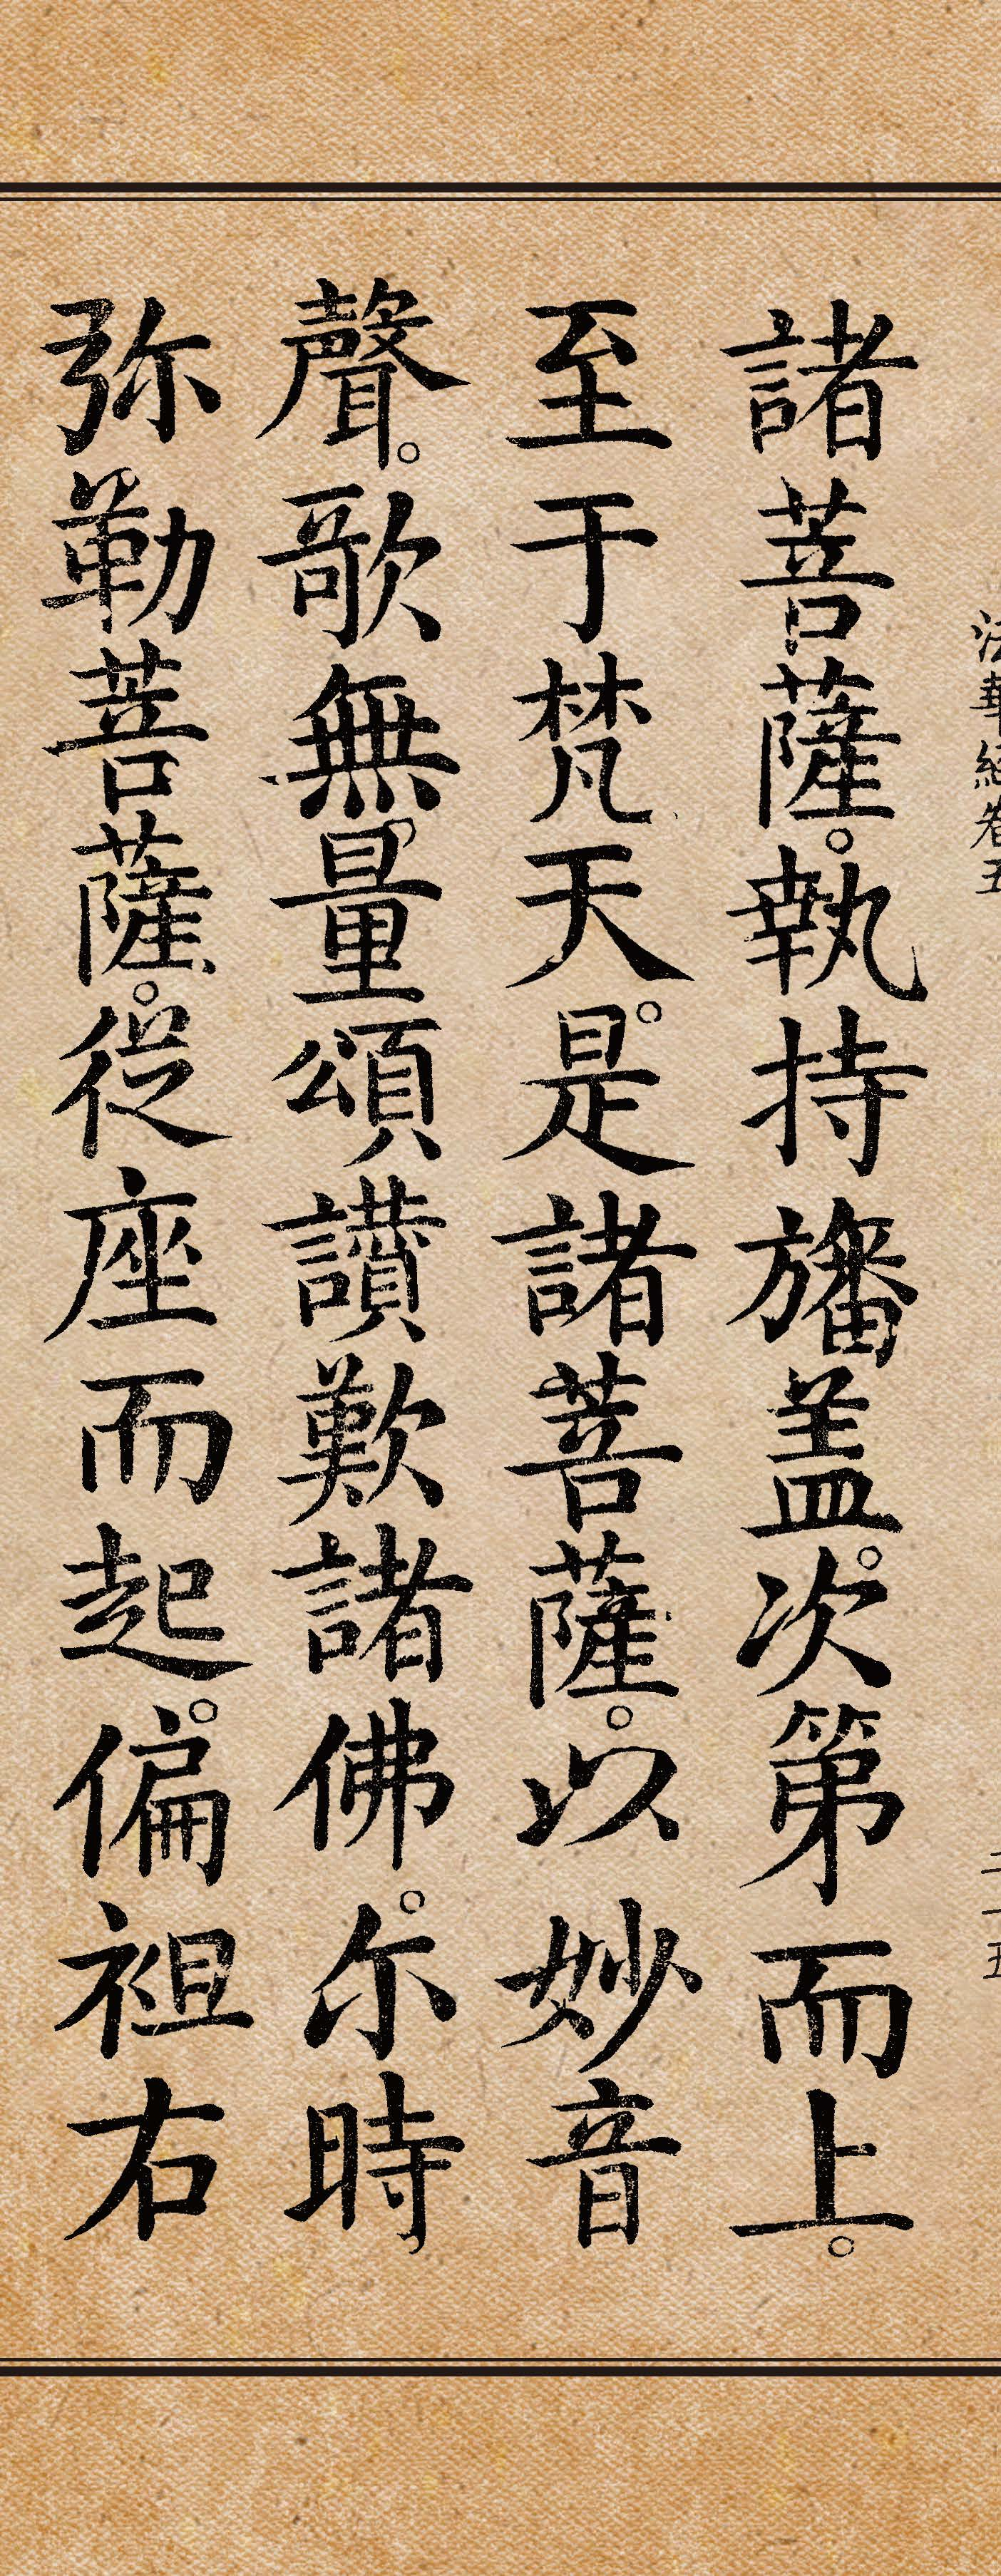 法華經卷五
二十五
諸菩薩。執持旛盖。次第而上。
至于梵天。是諸菩薩。以妙音
聲。歌無量頌讚歎諸佛。尒時
弥勒菩薩。從座而起。偏袒右